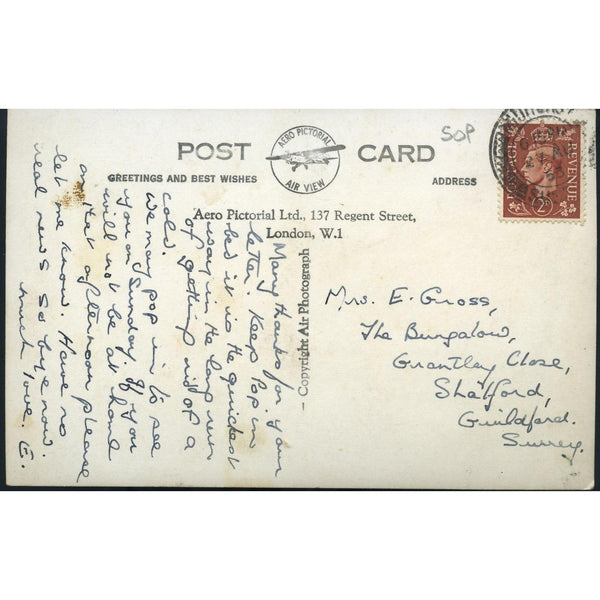 SOP
POST CARD
AERO PICTORIAL
AIR VIEW
GREETINGS AND BEST WISHES
ADDRESS
Aero Pictorial Ltd., 137 Regent Street,
London, W.1
— Copyright Air Photograph
POSTAGE REVENUE
2D
Many thanks for your
letter. Keep Pop in
bed it is the quickest
way in the long run
of getting rid of a
cold.
We may pop in to see
you on Sunday. If you
will not be at home
on that afternoon please
let me know. Have no
real news so bye now.
Much love. E.
Mrs. E. Gross,
The Bungalow,
Grantley Close,
Shalford,
Guildford.
Surrey.